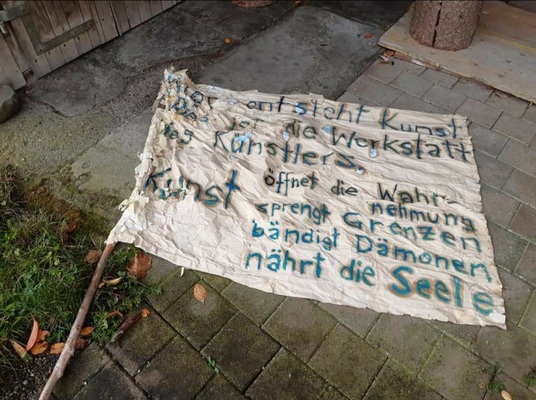 Hier entsteht Kunst
Das ist die Werkstatt
des Künstlers.
Kunst öffnet die Wahr-
nehmung
sprengt Grenzen
bändigt Dämonen
nährt die Seele